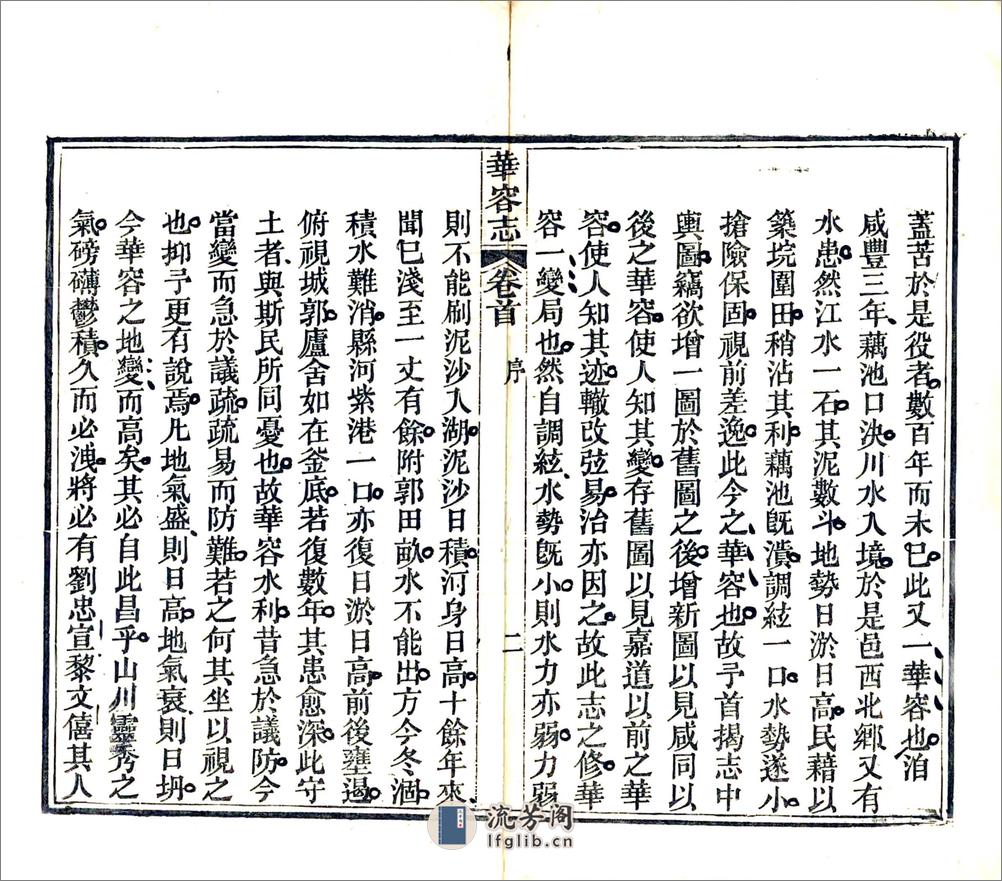 蓋苦於是役者數百年而未已此又一華容也洎
咸豐三年藕池口決川水入境於是邑西北鄉又有
水患然江水一石其泥數斗地勢日淤日高民藉以
築垸圍田稍沾其利藕池既潰調絃一口水勢遂小
搶險保固視前差逸此今之華容也故予首揭志中
輿圖竊欲增一圖於舊圖之後增新圖以見咸同以
後之華容使人知其變存舊圖以見嘉道以前之華
容使人知其迹轍改弦易治亦因之故此志之修華
容一變局也然自調絃水勢既小則水力亦弱力弱
華容志 卷首 序 二
則不能刷泥沙入湖泥沙日積河身日高十餘年來
聞已淺至一丈有餘附郭田畝水不能出方今冬涸
積水難消縣河紫港一口亦復日淤日高前後壅遏
俯視城郭廬舍如在釜底若復數年其患愈深此守
土者與斯民所同憂也故華容水利昔急於議防今
當變而急於議疏疏易而防難若之何其坐以視之
也抑予更有說焉凡地氣盛則日高地氣衰則日坍
今華容之地變而高矣其必自此昌乎山川靈秀之
氣磅礴鬱積久而必洩將必有劉忠宣黎文僖其人
流芳阁
lfglib.cn